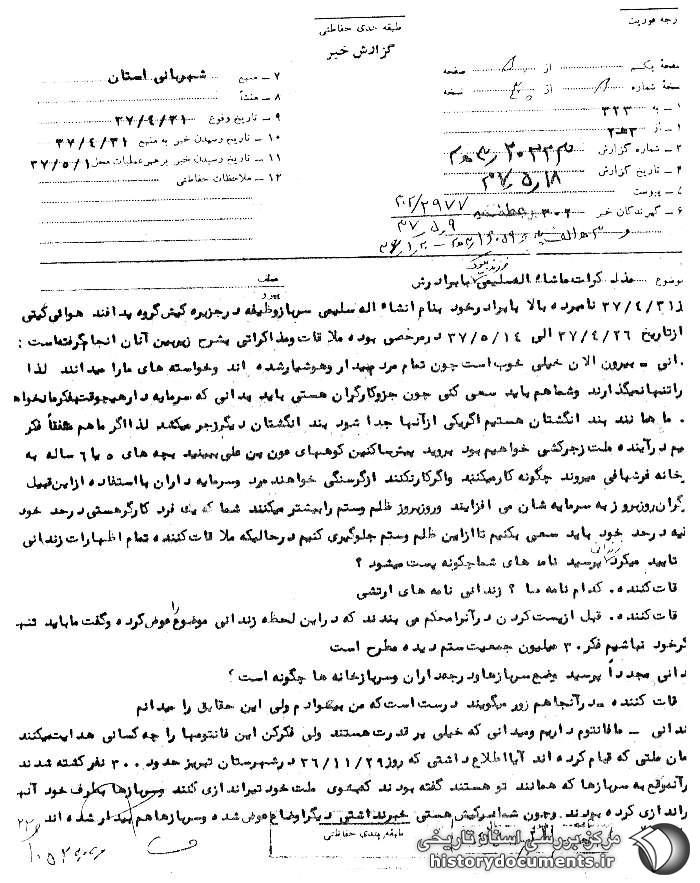 درجه فوریت
طبقه بندی حفاظتی
گزارش خبر
صفحه یکم از صفحه
نسخه شماره از نسخه
۱ – به ۳۲۳
۱ – از
۳ – شماره گزارش
۴ – تاریخ گزارش
۵ – پیوست
۶ – گیرندگان خبر
۷ – منبع شهربانی استان
۸ – منشأ
۹ – تاریخ وقوع ۳۷/۴/۳۱
۱۰ – تاریخ رسیدن خبر به منبع ۳۷/۴/۳۱
۱۱ – تاریخ رسیدن خبر برهبرعملیات محل ۳۷/۵/۱
۱۲ – ملاحظات حفاظتی
موضوع مذاکرات ماشاء اله سلیمی با برادرش
پیرو
۳۷/۴/۳۱ نامبرده بالا بابرادرخود بنام انشاء اله سلیمی سربازوظیفه درجزیره کیش گروه پدافند هوائی گیتی
ازتاریخ ۳۷/۴/۲۶ الی ۳۷/۵/۱۴ درمرخصی بوده ملاقات ومذاکراتی بشرح زیربین آنان انجام گرفته است :
دانی – بیرون الان خیلی خوب است چون تمام مردم بیدار وهوشیارشده اند وخواسته های مارا میدانند لذا
راتنهانمیگذارند وشماهم باید سعی کنی چون جزوکارگران هستی باید بدانی که سرمایه دارهیچوقت بفکرمانخواهد
. ما همانند بند انگشتان هستیم اگریکی ازآنها جدا شود بند انگشتان دیگرزجر میکشد لذااگر ماهم متفقاً فکر
یم درآینده ملت زجرکشی خواهیم بود بروید پیش ساکنین کوههای عون بن علی ببینید بچه های ۵ یا ۶ ساله به
رخانه فرشبافی میروند چگونه کارمیکنند واگرکارنکنند ازگرسنگی خواهند مرد وسرمایه داران بااستفاده ازاین قبیل
گران روزبروز به سرمایه شان می افزایند وروزبروز ظلم وستم رابیشتر میکنند شما که یک فرد کارگرهستی درحد خود
قیه درحد خود باید سعی بکنیم تاازاین ظلم وستم جلوگیری کنیم درحالیکه ملاقات کننده تمام اظهارات زندانی
تایید میکرد زندانی پرسید نامه های شماچگونه پست میشود ؟
قات کننده . کدام نامه ها ؟ زندانی نامه های ارتشی
قات کننده . قبل ازپست کردن درآنرامحکم می بندند که دراین لحظه زندانی موضوع راعوض کرده وگفت ماباید تنها
کرخود نباشیم فکر ۳۰ میلیون جمعیت ستم دیده مطرح است
دانی مجدداً پرسید وضع سربازهاودرجه داران وسربازخانه ها چگونه است ؟
قات کننده – درآنجاهم زور میگویند درست است که من بیسوادم ولی این حقایق را میدانم
ندانی – مافانتوم داریم ومیدانی که خیلی پر قدرت هستند ولی فکرکن این فانتومها را چه کسانی هدایت میکنند
مان ملتی که قیام کرده اند آیااطلاع داشتی که روز ۳۶/۱۱/۲۹ درشهرستان تبریز حدود ۳۰۰ نفرکشته شدند
رآنموقع به سربازها که همانند تو هستند گفته بودند که بسوی ملت خود تیراندازی کنند وسربازها بطرف خود آنها
راندازی کرده بودند وچون شمادرکیش هستی خبرنداشتی دیگراوضاع عوض شده وسربازهاهم بیدار شده اند
طبقه بندی حفاظتی
مرکز بررسی اسناد تاریخی
historydocuments.ir